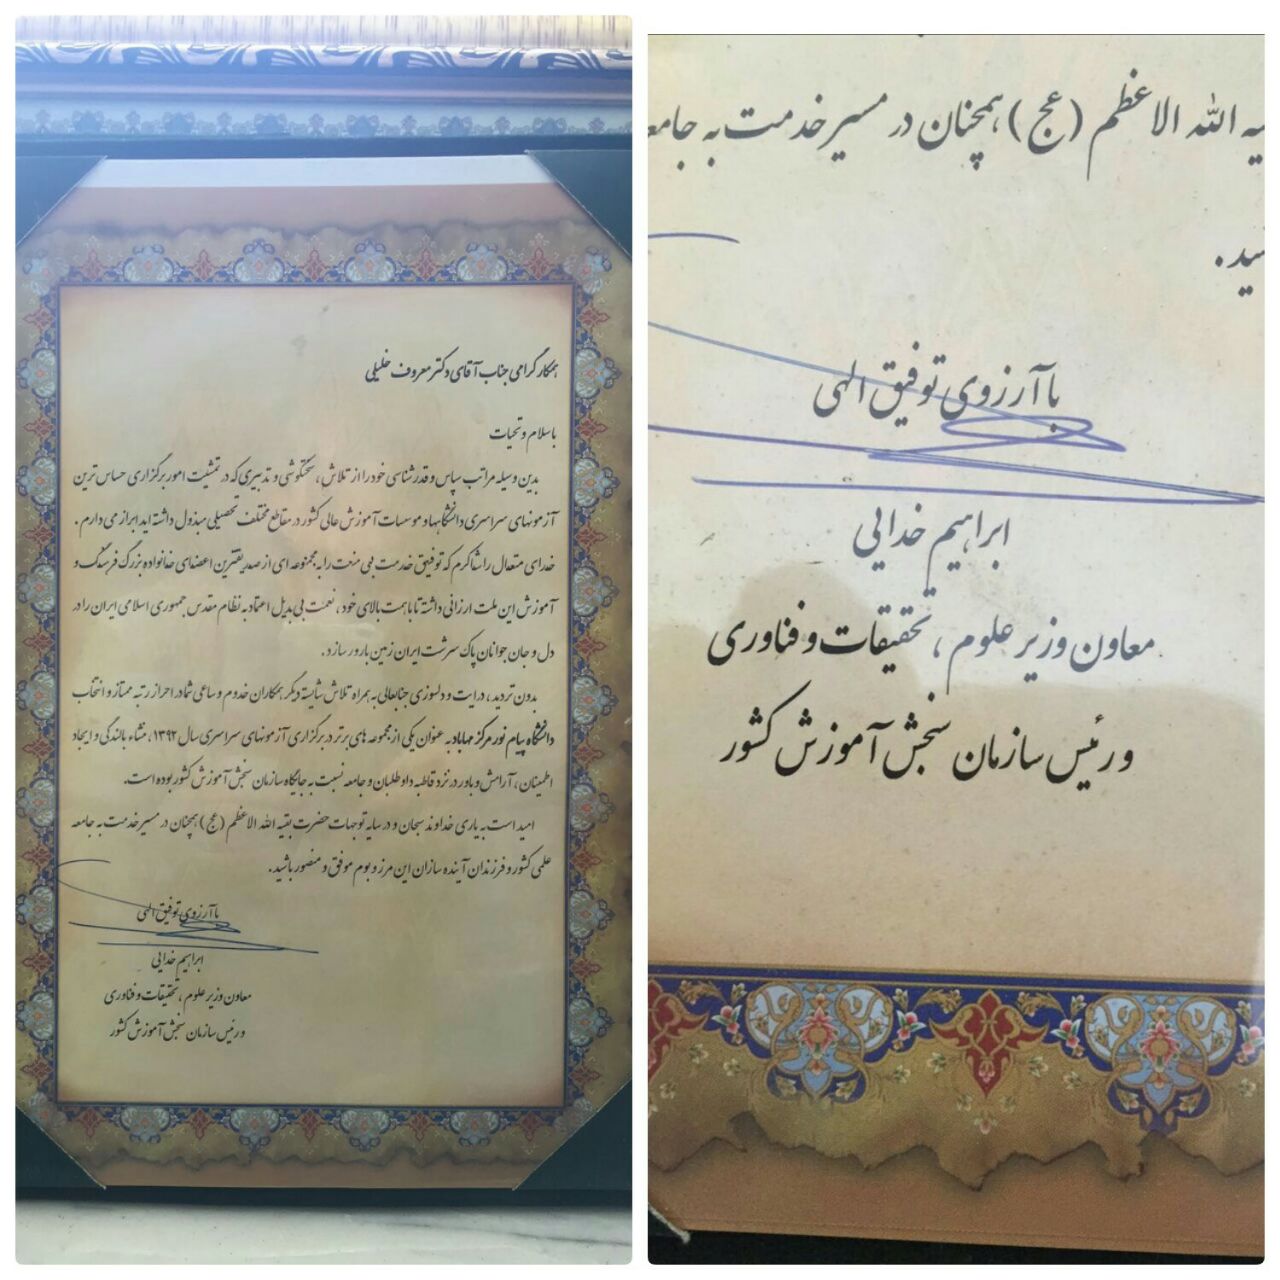 همکار گرامی جناب آقای دکتر معروف خلیلی
با سلام و تحیات
بدین وسیله مراتب سپاس و قدرشناسی خود را از تلاش، سختکوشی و تدبیری که در تمشیت امور برگزاری حساس ترین
آزمونهای سراسری دانشگاهها و موسسات آموزش عالی کشور در مقاطع مختلف تحصیلی مبذول داشته اید ابراز می دارم.
خدای متعال را شاکرم که توفیق خدمت بی منت را به مجموعه ای از صدیقترین اعضای خانواده بزرگ فرهنگ و
آموزش این ملت ارزانی داشته تا با همت بالای خود، نعمت بی بدیل اعتماد به نظام مقدس جمهوری اسلامی ایران را در
دل و جان جوانان پاک سرشت ایران زمین بارور سازد.
بدون تردید، درایت و دلسوزی جنابعالی به همراه تلاش شایسته دیگر همکاران خدوم و ساعی شما در احراز رتبه ممتاز و انتخاب
دانشگاه پیام نور مرکز مهاباد به عنوان یکی از مجموعه های برتر در برگزاری آزمونهای سراسری سال ۱۳۹۲، منشاء بالندگی و ایجاد
اطمینان، آرامش و باور در نزد قاطبه داوطلبان و جامعه نسبت به جایگاه سازمان سنجش آموزش کشور بوده است.
امید است به یاری خداوند سبحان و در سایه توجهات حضرت بقیه الله الاعظم (عج) همچنان در مسیر خدمت به جامعه
علمی کشور و فرزندان آینده سازان این مرز و بوم موفق و منصور باشید.
با آرزوی توفیق الهی
ابراهیم خدایی
معاون وزیر علوم، تحقیقات و فناوری
و رئیس سازمان سنجش آموزش کشور
یه الله الاعظم (عج) همچنان در مسیر خدمت به جامعه
شید.
با آرزوی توفیق الهی
ابراهیم خدایی
معاون وزیر علوم، تحقیقات و فناوری
و رئیس سازمان سنجش آموزش کشور